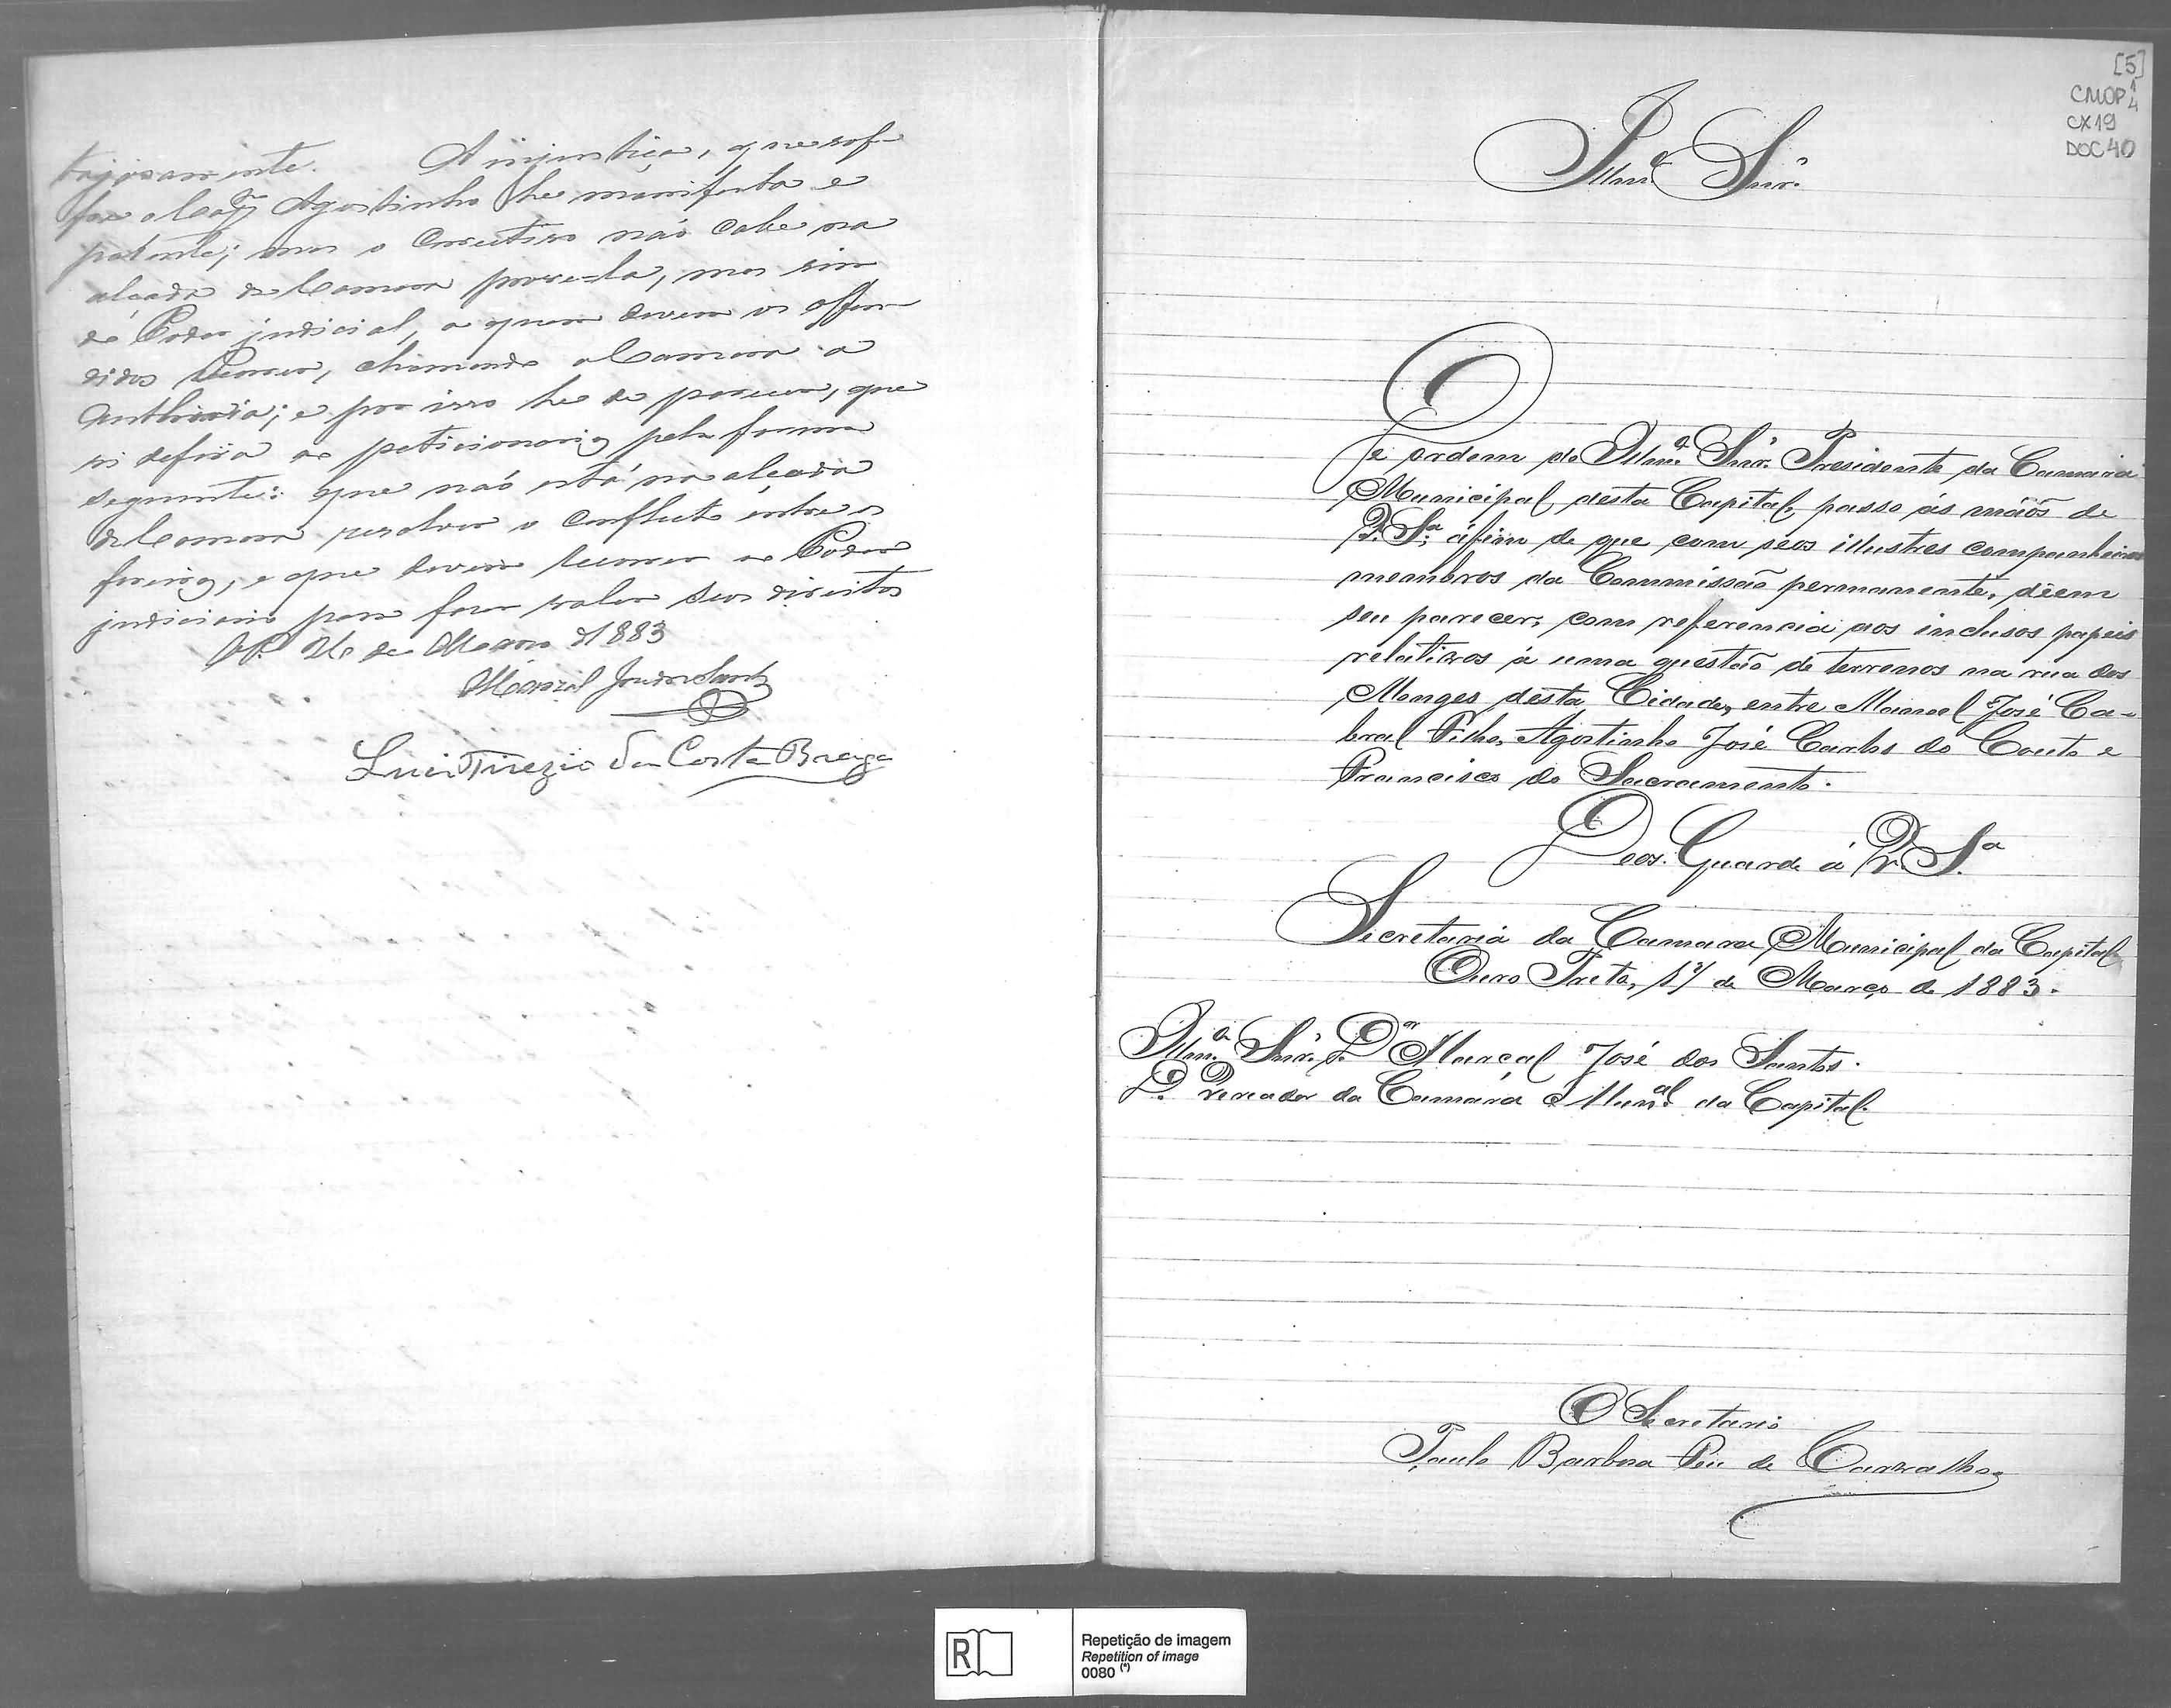 tajosamente. A injustiça, que sof-
fre o Cap.m Agostinho he manifesta e
patente; mas o Executivo não cabe na
alçada da Camara provel-a, mas sim
do Poder judicial, a quem devem os offen-
didos recorrer, chamando a Camara a
Authoria; e por isso he de parecer, que
se defira ao peticionario pela forma
seguinte: que não está na alçada
da Camara resolver o conflicto entre os
foreiros, e que devem recorrer ao Poder
judiciario para fazer valer seus direitos
O. P. de Março d 1883
Marçal José dos Santos
Luiz da Costa Braga
[5]
CMOP 1/4
CX19
DOC 40
Illm.o Snr.
De ordem do Illm.o Snr. Presidente da Camara
Municipal desta Capital, passo ás mãos de
V. S.a, áfim de que com seos illustres companheiros
membros da Commissão permanente, dêem
seu parecer, com referencia aos inclusos papeis
relativos á uma questão de terrenos na rua dos
Monges desta Cidade, entre Manoel José Ca-
bral Filho, Agostinho José Carlos do Couto e
Francisco do Sacramento.
Deos Guarde á V. S.a
Secretaria da Camara Municipal da Capital
Ouro Preto, 17 de Março de 1883.
Illm.o Snr. D.or Marçal José dos Santos.
D. Vereador da Camara Mun.al da Capital.
O Secretario
Paulo Barbosa de Carvalho
R
Repetição de imagem
Repetition of image
0080 (*)